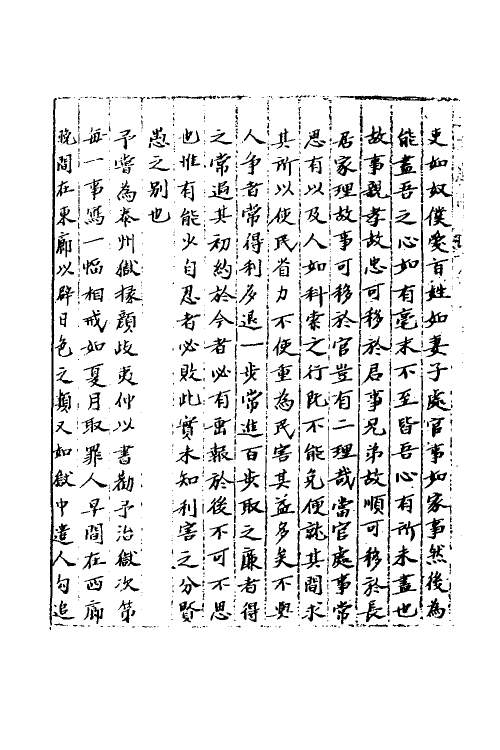 吏如奴僕愛百姓如妻子處官事如家事然後為
能盡吾之心如有毫末不至皆吾心有所未盡也
故事親孝故忠可移於君事兄弟故順可移於長
居家理故事可移於官豈有二理哉當官處事常
思有以及人如科索之行既不能免便就其間求
其所以使民省力不使重為民害其益多矣不與
人爭者常得利多退一步常進百步取之廉者得
之常過其初約於今者必有重報於後不可不思
也惟有能少自忍者必敗此實未知利害之分賢
愚之别也
予嘗為泰州獄掾顔岐夷仲以書勸予治獄次第
每一事寫一幅相戒如夏月取罪人早間在西廊
晚間在東廊以辟日色之類又如獄中遣人勾追